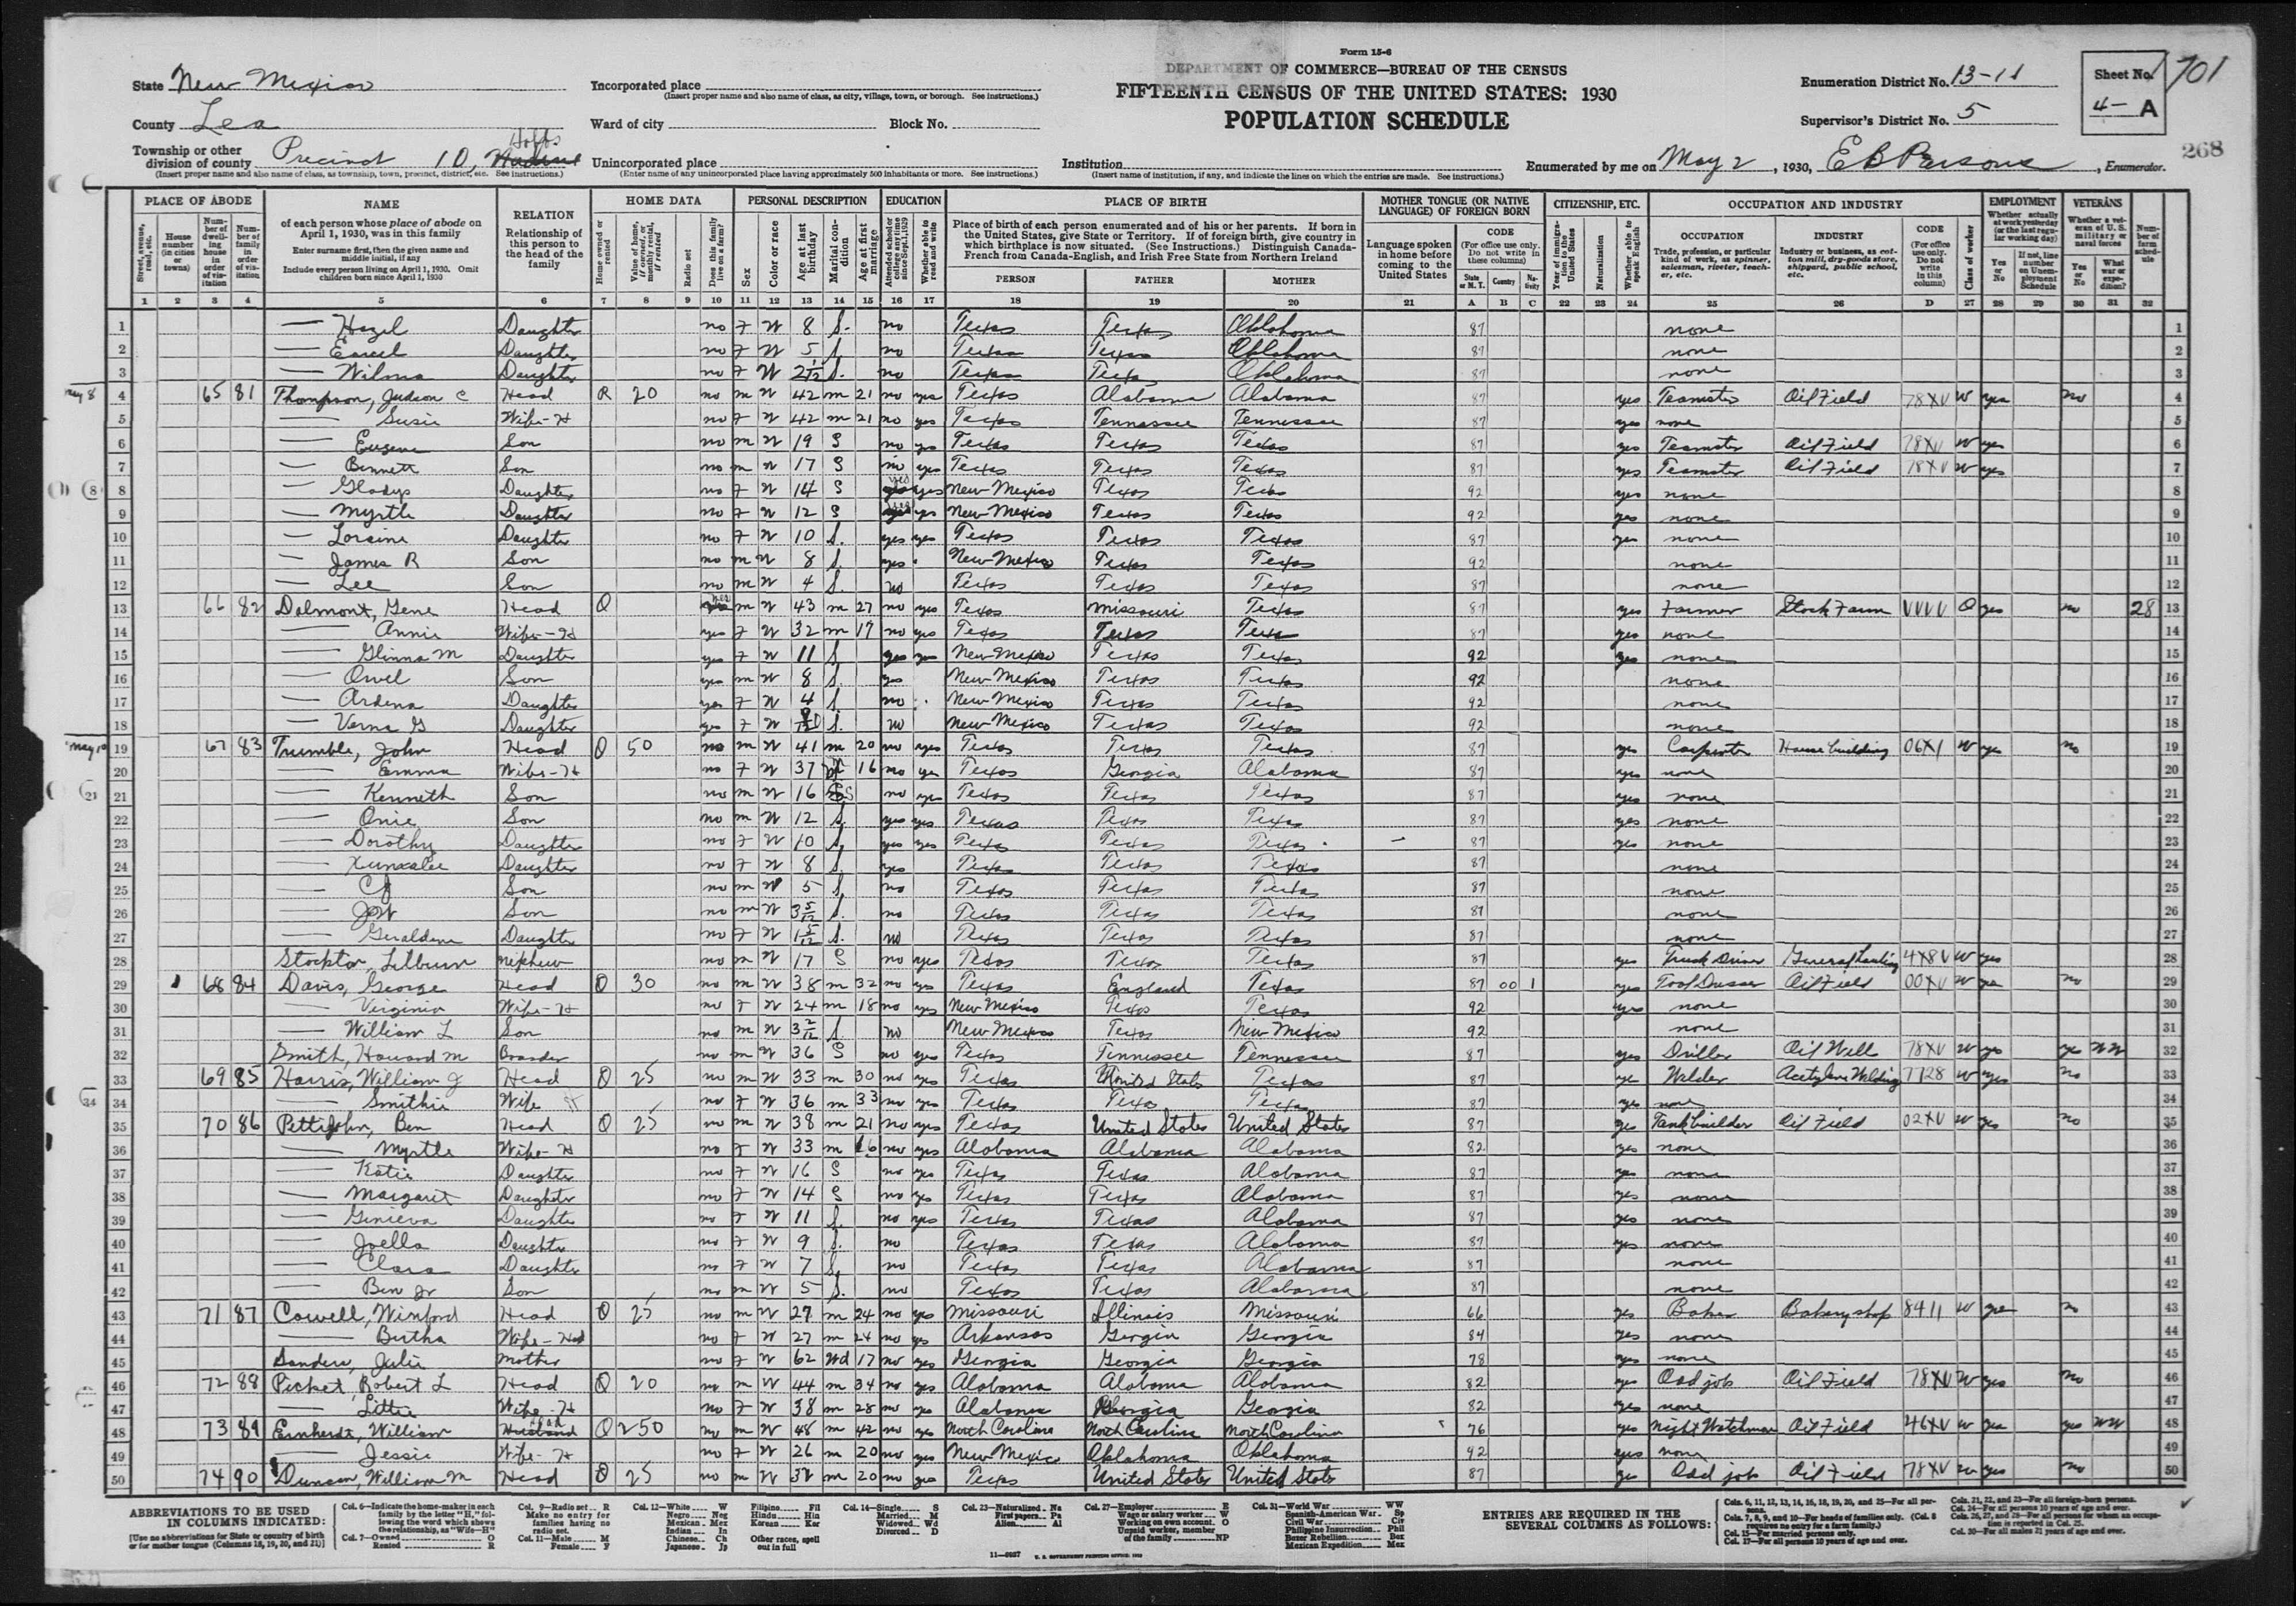 Form 15-6
DEPARTMENT OF COMMERCE—BUREAU OF THE CENSUS
FIFTEENTH CENSUS OF THE UNITED STATES: 1930
POPULATION SCHEDULE
State New Mexico
County Lea
Township or other division of county Precinct 10, Hobbs
(Insert proper name and also name of class, as township, town, precinct, district, etc. See instructions.)
Incorporated place
(Insert proper name and also name of class, as city, village, town, or borough. See instructions.)
Ward of city Block No.
Unincorporated place
(Enter name of any unincorporated place having approximately 500 inhabitants or more. See instructions.)
Institution
(Insert name of institution, if any, and indicate the lines on which the entries are made. See instructions.)
Enumeration District No. 13-11
Supervisor's District No. 5
Sheet No. 4- A
701
268
Enumerated by me on May 2, 1930, E B Persons, Enumerator.
PLACE OF ABODE NAME RELATION HOME DATA PERSONAL DESCRIPTION EDUCATION PLACE OF BIRTH MOTHER TONGUE (OR NATIVE LANGUAGE) OF FOREIGN BORN CITIZENSHIP, ETC. OCCUPATION AND INDUSTRY EMPLOYMENT VETERANS
1 2 3 4 5 6 7 8 9 10 11 12 13 14 15 16 17 18 19 20 21 A B C 22 23 24 25 26 D 27 28 29 30 31 32
1 — Hazel Daughter no F W 8 S. no Texas Texas Oklahoma 87 none 1
2 — Daughter no F W 5 S no Texas Texas Oklahoma 87 none 2
3 — Wilma Daughter no F W 2 1/12 S. no Texas Texas Oklahoma 87 none 3
May 8 4 65 81 Thompson, Judson C Head R 20 no m W 42 m 21 no yes Texas Alabama Alabama 87 yes Teamster Oil Field 78XV W yes no 4
5 — Susie Wife-H no F W 42 m 21 no yes Texas Tennessee Tennessee 87 yes none 5
6 — Eugene Son no m W 19 S no yes Texas Texas Texas 87 yes Teamster Oil Field 78XV W yes 6
7 — Bennett Son no m W 17 S no yes Texas Texas Texas 87 yes Teamster Oil Field 78XV W yes 7
8 — Gladys Daughter no F W 14 S yes yes New Mexico Texas Texas 92 yes none 8
9 — Myrtle Daughter no F W 12 S yes yes New Mexico Texas Texas 92 yes none 9
10 — Loraine Daughter no F W 10 S. yes yes Texas Texas Texas 87 yes none 10
11 — James R Son no m W 8 S. yes New Mexico Texas Texas 92 none 11
12 — Lee Son no m W 4 S. no Texas Texas Texas 87 none 12
13 66 82 Dolmont, Gene Head O yes m W 43 m 27 no yes Texas Missouri Texas 87 yes Farmer Stock Farm VVVV O yes no 28 13
14 — Annie Wife-H yes F W 32 m 17 no yes Texas Texas Texas 87 yes none 14
15 — Glinna M Daughter yes F W 11 S yes yes New Mexico Texas Texas 92 yes none 15
16 — Orvel Son yes m W 8 S. yes New Mexico Texas Texas 92 none 16
17 — Ardena Daughter yes F W 4 S. no New Mexico Texas Texas 92 none 17
18 — Verna G Daughter yes F W S. no New Mexico Texas Texas 92 none 18
May 10 19 67 83 Trumble, John Head O 50 no m W 41 m 20 no yes Texas Texas Texas 87 yes Carpenter House building 06X1 W yes no 19
20 — Emma Wife-H no F W 37 m 16 no yes Texas Georgia Alabama 87 yes none 20
21 — Kenneth Son no m W 16 S no yes Texas Texas Texas 87 yes none 21
22 — Orie Son no m W 12 S. yes yes Texas Texas Texas 87 yes none 22
23 — Dorothy Daughter no F W 10 S yes yes Texas Texas Texas 87 yes none 23
24 — Daughter no F W 8 S yes Texas Texas Texas 87 none 24
25 — CJ Son no m W 5 S no Texas Texas Texas 87 none 25
26 — JW Son no m W 3 5/12 S. no Texas Texas Texas 87 none 26
27 — Geraldine Daughter no F W 1 5/12 S. no Texas Texas Texas 87 none 27
28 Stockton, Lilburn nephew no m W 17 S no yes Texas Texas Texas 87 yes Truck Driver General hauling 4X8V W yes 28
29 68 84 Davis, George Head O 30 no m W 38 m 32 no yes Texas England Texas 87 00 1 yes Tool Dresser Oil Field 00XV W yes no 29
30 — Virginia Wife-H no F W 24 m 18 no yes New Mexico Texas Texas 92 yes none 30
31 — William L Son no m W 3 2/12 S. no New Mexico Texas New Mexico 92 none 31
32 Smith, Howard M Boarder no m W 36 S no yes Texas Tennessee Tennessee 87 yes Driller Oil Well 78XV W yes yes WW 32
33 69 85 Harris, William J Head O 25 no m W 33 m 30 no yes Texas United States Texas 87 yes Welder Acetylene Welding 7728 W yes no 33
34 — Smithie Wife H no F W 36 m 33 no yes Texas Texas Texas 87 yes none 34
35 70 86 Pettijohn, Ben Head O 25 no m W 38 m 21 no yes Texas United States United States 87 yes Tank builder Oil Field 02XV W yes no 35
36 — Myrtle Wife-H no F W 33 m 16 no yes Alabama Alabama Alabama 82 yes none 36
37 — Katie Daughter no F W 16 S no yes Texas Texas Alabama 87 yes none 37
38 — Margaret Daughter no F W 14 S no yes Texas Texas Alabama 87 yes none 38
39 — Genieva Daughter no F W 11 S. no yes Texas Texas Alabama 87 yes none 39
40 — Joella Daughter no F W 9 S. no Texas Texas Alabama 87 yes none 40
41 — Clara Daughter no F W 7 S no Texas Texas Alabama 87 none 41
42 — Ben Jr Son no m W 5 S. no Texas Texas Alabama 87 none 42
43 71 87 Cowell, Winford Head O 25 no m W 27 m 24 no yes Missouri Illinois Missouri 66 yes Baker Bakery shop 8411 W yes no 43
44 — Birtha Wife-H no F W 27 m 24 no yes Arkansas Georgia Georgia 84 yes none 44
45 Sanders, Julie Mother no F W 62 Wd 17 no yes Georgia Georgia Georgia 78 yes none 45
46 72 88 Picket, Robert L Head O 20 no m W 44 m 34 no yes Alabama Alabama Alabama 82 yes Odd job Oil Field 78XV W yes no 46
47 — Littie Wife-H no F W 38 m 28 no yes Alabama Georgia Georgia 82 yes none 47
48 73 89 Earnherdt, William Head O 250 no m W 48 m 42 no yes North Carolina North Carolina North Carolina 76 yes Night Watchman Oil Field 46XV W yes yes WW 48
49 — Jessie Wife-H no F W 26 m 20 no yes New Mexico Oklahoma Oklahoma 92 yes none 49
50 74 90 Duncan, William M Head O 25 no m W 32 m 20 no yes Texas United States United States 87 yes Odd job Oil Field 78XV W yes no 50
ABBREVIATIONS TO BE USED IN COLUMNS INDICATED:
[Use no abbreviations for State or country of birth or for mother tongue (Columns 18, 19, 20, and 21)]
ENTRIES ARE REQUIRED IN THE SEVERAL COLUMNS AS FOLLOWS: